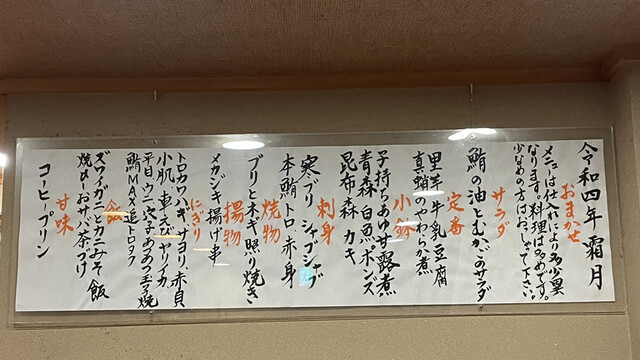 令和四年 霜月
おまかせ
メニューは仕入れにより多少異
なります。料理は多めです。
少なめの方はおっしゃって下さい。
サラダ
鮪の油とむかごのサラダ
定番
里芋牛乳豆腐
真蛸のやわらか煮
小鉢
子持ちあゆ甘露煮
青森 白魚ポンズ
昆布森 カキ
刺身
寒ブリ シャブシャブ
本鮪トロ、赤身
焼物
ブリと木ギ照り焼き
揚物
メカジキ揚げ串
にぎり
トロカワハギ、サヨリ、赤貝
小肌、車えび、アオリイカ
平目 ウニ 穴子 あなつ 玉子焼
鮪MAX追トロタク
飯
ズワイガニ カニみそ飯
焼はまーおサバ茶づけ
甘味
コーヒープリン